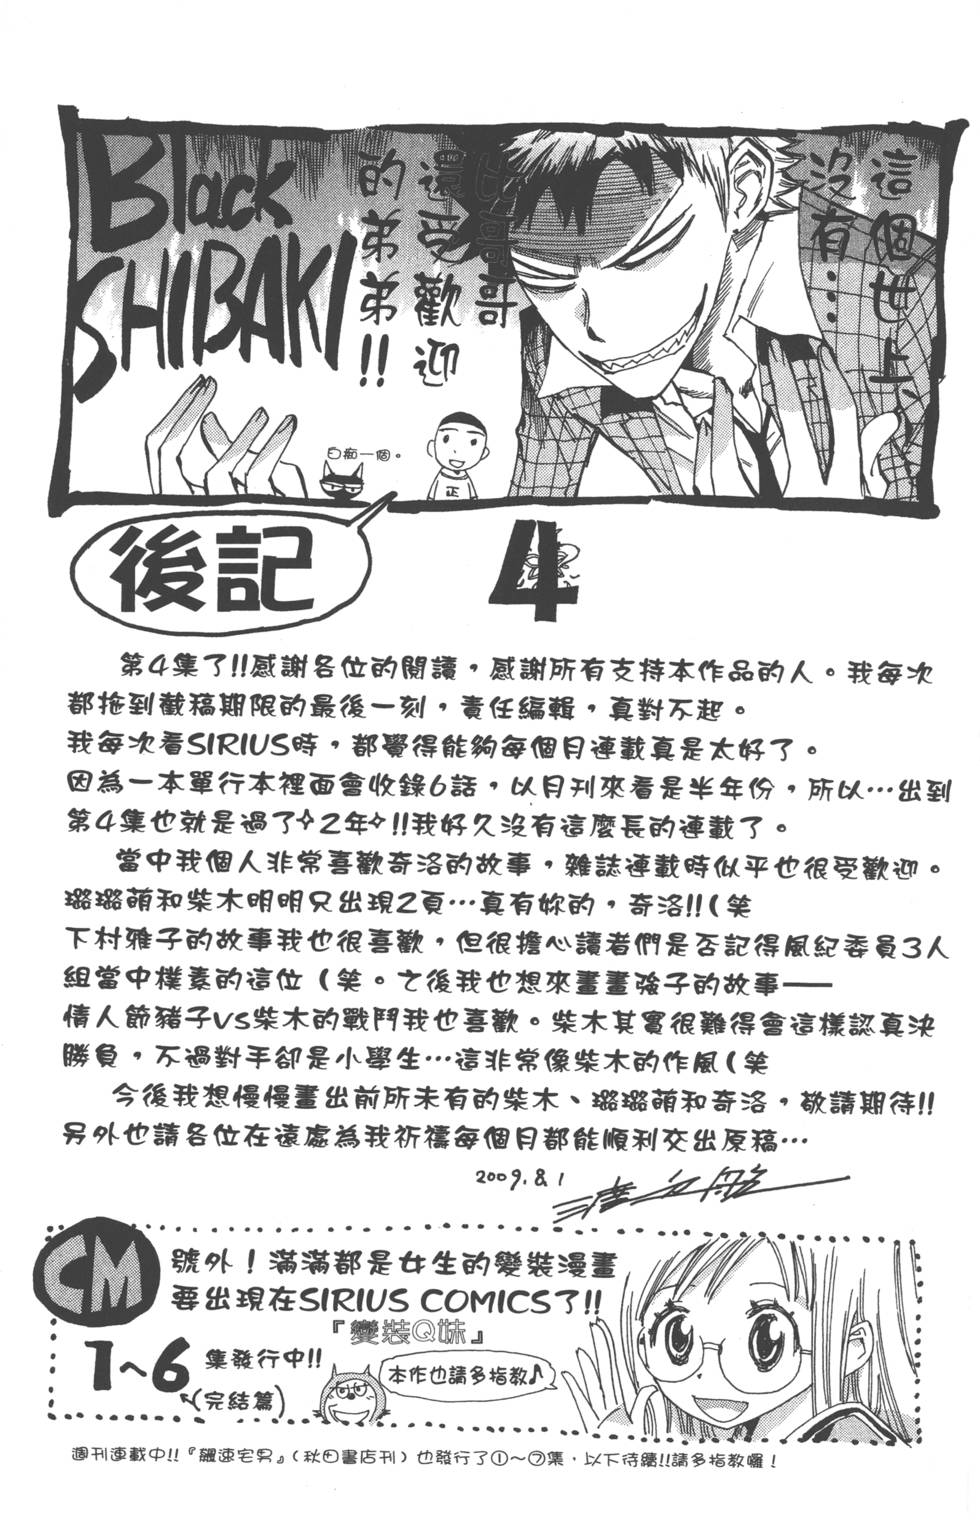 這個世上、
沒有……
比哥哥
還受歡迎
的弟弟!!
Black
SHIBAKI
白痴一個。
正
後記
4
第4集了!!感謝各位的閱讀，感謝所有支持本作品的人。我每次
都拖到截稿期限的最後一刻，責任編輯，真對不起。
我每次看SIRIUS時，都覺得能夠每個月連載真是太好了。
因為一本單行本裡面會收錄6話，以月刊來看是半年份，所以…出到
第4集也就是過了✧2年✧!!我好久沒有這麼長的連載了。
當中我個人非常喜歡奇洛的故事，雜誌連載時似乎也很受歡迎。
璐璐萌和柴木明明只出現2頁…真有妳的，奇洛!!(笑
下村雅子的故事我也很喜歡，但很擔心讀者們是否記得風紀委員3人
組當中樸素的這位（笑。之後我也想來畫畫強子的故事——
情人節豬子VS柴木的戰鬥我也喜歡。柴木其實很難得會這樣認真決
勝負，不過對手卻是小學生…這非常像柴木的作風(笑
今後我想慢慢畫出前所未有的柴木、璐璐萌和奇洛，敬請期待!!
另外也請各位在遠處為我祈禱每個月都能順利交出原稿…
2009.8.1
CM
號外！滿滿都是女生的變裝漫畫
要出現在SIRIUS COMICS了!!
『變裝Q妹』
1~6
集發行中!!
(完結篇)
本作也請多指教♪
週刊連載中!!『飆速宅男』(秋田書店刊)也發行了①～⑦集，以下待續!!請多指教囉！